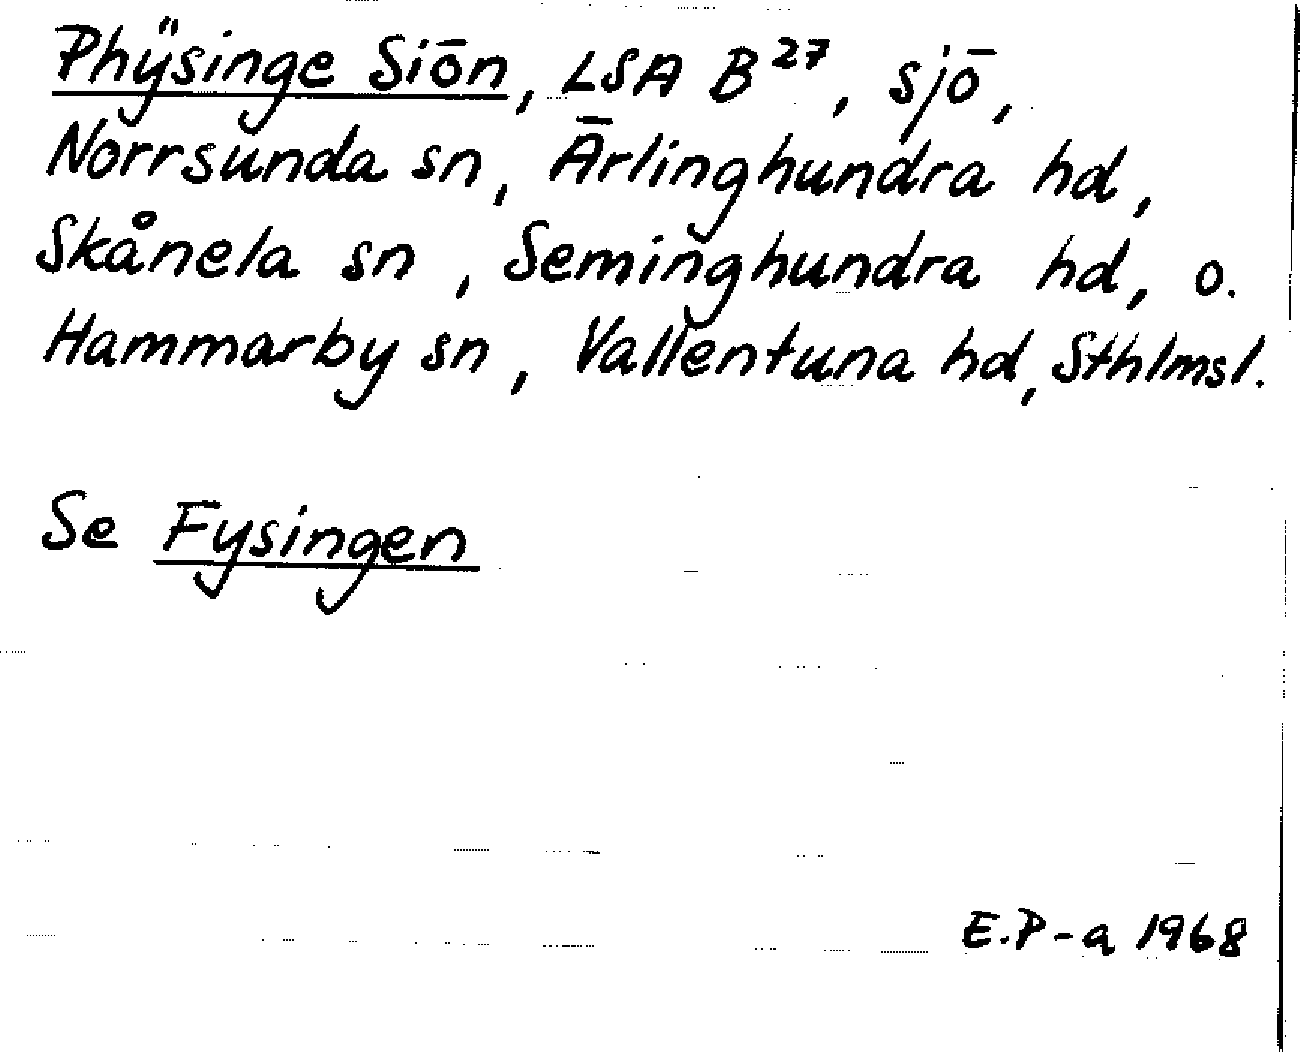 Phÿsinge Siön, LSA B27, sjö,
Norrsunda sn, Ärlinghundra hd,
Skånela sn, Seminghundra hd, o.
Hammarby sn, Vallentuna hd, Sthlmsl.
Se Fysingen
E.P-a 1968